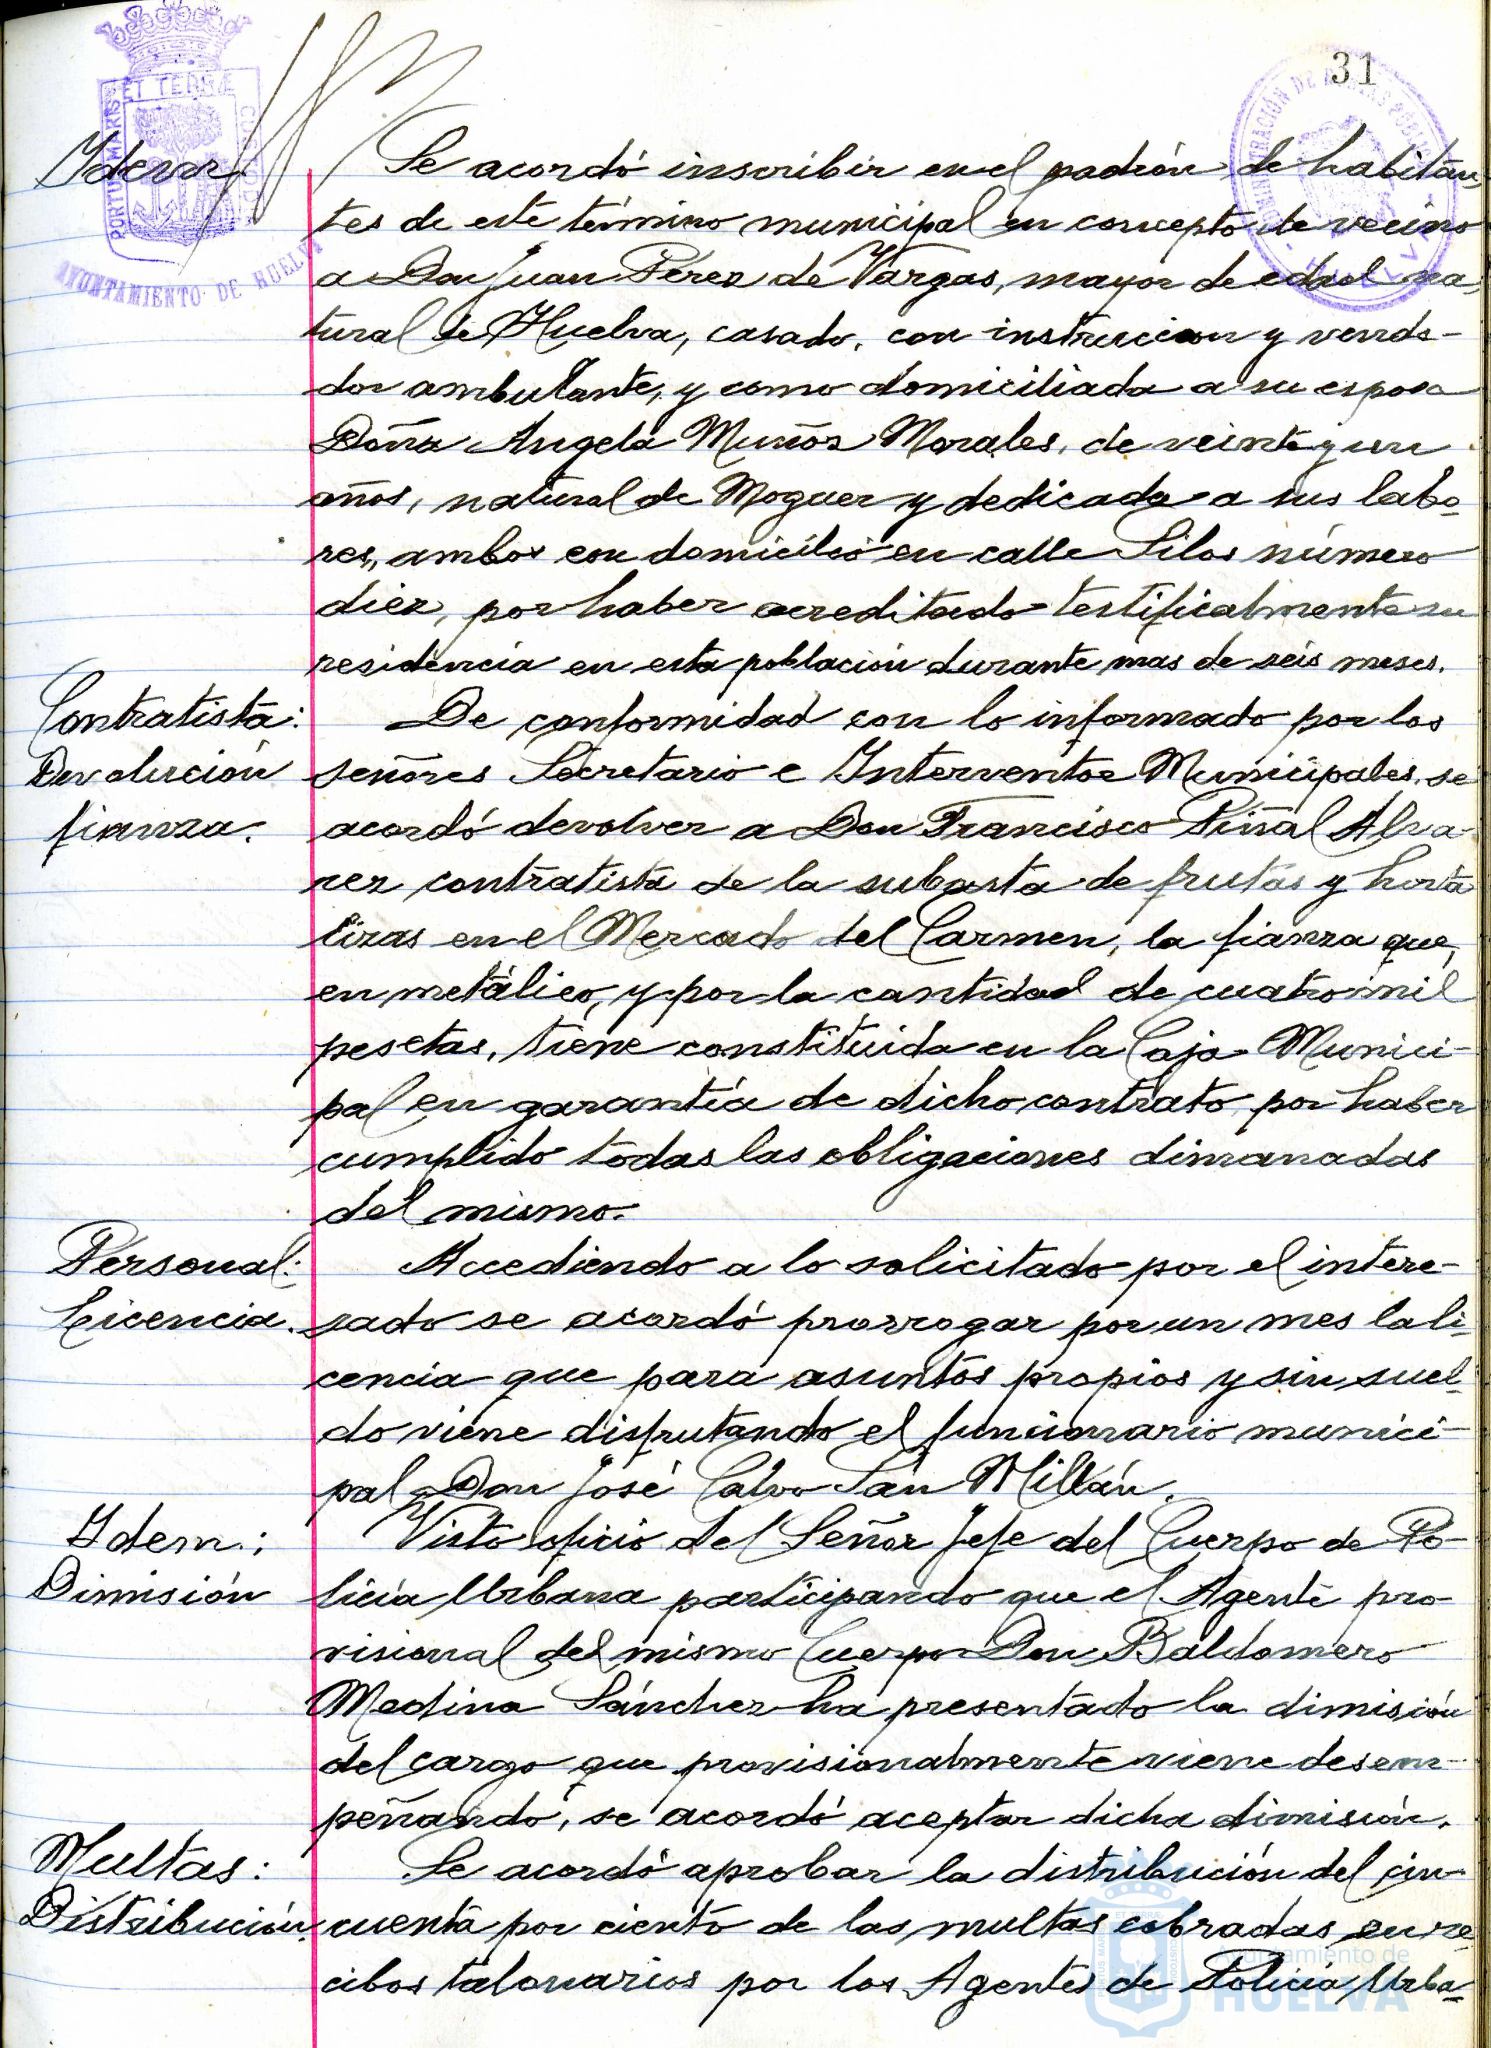 31
ET TERRÆ
PORTUS MARIS
CUSTODIA
AYUNTAMIENTO DE HUELVA
Idem
Se acordó inscribir en el padrón de habitan-
tes de este término municipal en concepto de vecino
a Don Juan Pérez de Vargas, mayor de edad na-
tural de Huelva, casado, con instruccion y vende-
dor ambulante, y como domiciliada a su esposa
Doña Angela Muñoz Morales, de veinte y un
años, natural de Moguer y dedicada a sus labo-
res, ambos con domicilio en calle Silos número
diez, por haber acreditado testificalmente su
residencia en esta población durante mas de seis meses.
Contratista:
Devolución
fianza.
De conformidad con lo informado por los
señores Secretario e Interventor Municipales, se
acordó devolver a Don Francisco Piñal Alva-
rez contratista de la subasta de frutas y horta
lizas en el Mercado del Carmen, la fianza que,
en metálico, y por la cantidad de cuatro mil
pesetas, tiene constituida en la Caja Munici-
pal en garantía de dicho contrato, por haber
cumplido todas las obligaciones dimanadas
del mismo.
Personal:
Licencia.
Accediendo a lo solicitado por el intere-
sado se acordó prorrogar por un mes la li-
cencia que para asuntos propios y sin suel-
do viene disfrutando el funcionario munici-
pal Don José Calvo San Millán.
Idem:
Dimisión
Visto oficio del Señor Jefe del Cuerpo de Po-
licía Urbana participando que el Agente pro-
visional del mismo Cuerpo Don Baldomero
Medina Sánchez ha presentado la dimisión
del cargo que provisionalmente viene desem-
peñando, se acordó aceptar dicha dimisión.
Multas:
Distribución.
Se acordó aprobar la distribución del cin-
cuenta por ciento de las multas cobradas en re-
cibos talonarios por los Agentes de Policía Urba-
Ayuntamiento de
HUELVA